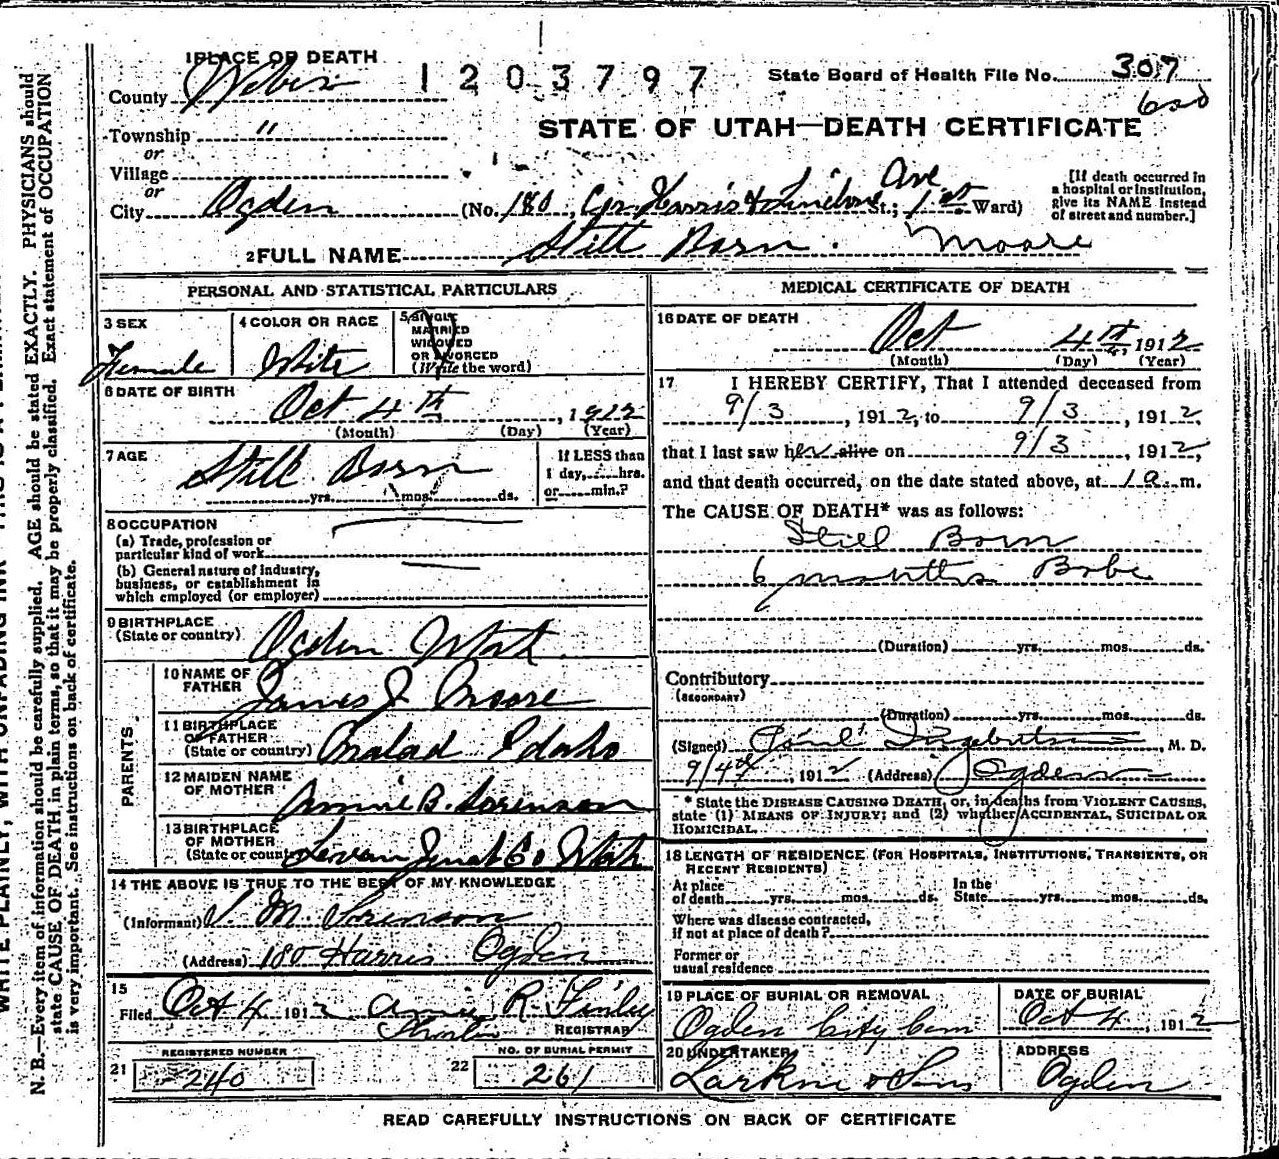 1 PLACE OF DEATH
County Weber
1203797
State Board of Health File No. 307
600
Township "
or
Village
or
City Ogden
STATE OF UTAH—DEATH CERTIFICATE
(No. 180, Cr. Harris & Lincoln Ave St.; 1st Ward)
[If death occurred in
a hospital or institution,
give its NAME instead
of street and number.]
2 FULL NAME Still Born. Moore
PERSONAL AND STATISTICAL PARTICULARS
3 SEX
Female
4 COLOR OR RACE
White
5 SINGLE
MARRIED
WIDOWED
OR DIVORCED
(Write the word)
6 DATE OF BIRTH
Oct 4th, 1912
(Month) (Day) (Year)
7 AGE
Still Born
yrs. mos. ds.
If LESS than
1 day, hrs.
or min.?
8 OCCUPATION
(a) Trade, profession or
particular kind of work
(b) General nature of industry,
business, or establishment in
which employed (or employer)
9 BIRTHPLACE
(State or country) Ogden Utah
PARENTS
10 NAME OF
FATHER James J Moore
11 BIRTHPLACE
OF FATHER
(State or country) Malad Idaho
12 MAIDEN NAME
OF MOTHER Annie B. Sorenson
13 BIRTHPLACE
OF MOTHER
(State or country) Levan Juab Co Utah
14 THE ABOVE IS TRUE TO THE BEST OF MY KNOWLEDGE
(Informant) M. Sorenson
(Address) 180 Harris Ogden
15
Filed Oct 4 1912 Annie R. Finley
REGISTRAR
21 REGISTERED NUMBER
240
22 NO. OF BURIAL PERMIT
261
MEDICAL CERTIFICATE OF DEATH
16 DATE OF DEATH
Oct 4th, 1912
(Month) (Day) (Year)
17 I HEREBY CERTIFY, That I attended deceased from
9/3, 1912, to 9/3, 1912
that I last saw her alive on 9/3, 1912,
and that death occurred, on the date stated above, at 1 a. m.
The CAUSE OF DEATH* was as follows:
Still Born
6 months Babe
(Duration) yrs. mos. ds.
Contributory
(SECONDARY)
(Duration) yrs. mos. ds.
(Signed) Ingebretsen, M. D.
9/4th, 1912 (Address) Ogden
* State the DISEASE CAUSING DEATH, or, in deaths from VIOLENT CAUSES,
state (1) MEANS OF INJURY; and (2) whether ACCIDENTAL, SUICIDAL OR
HOMICIDAL.
18 LENGTH OF RESIDENCE (FOR HOSPITALS, INSTITUTIONS, TRANSIENTS, OR
RECENT RESIDENTS)
At place
of death yrs. mos. ds.
In the
State yrs. mos. ds.
Where was disease contracted,
if not at place of death?
Former or
usual residence
19 PLACE OF BURIAL OR REMOVAL
Ogden City Cem
DATE OF BURIAL
Oct 4, 1912
20 UNDERTAKER
Larkin & Sons
ADDRESS
Ogden
READ CAREFULLY INSTRUCTIONS ON BACK OF CERTIFICATE
N. B.—Every item of information should be carefully supplied. AGE should be stated EXACTLY. PHYSICIANS should
state CAUSE OF DEATH in plain terms, so that it may be properly classified. Exact statement of OCCUPATION
is very important. See instructions on back of certificate.